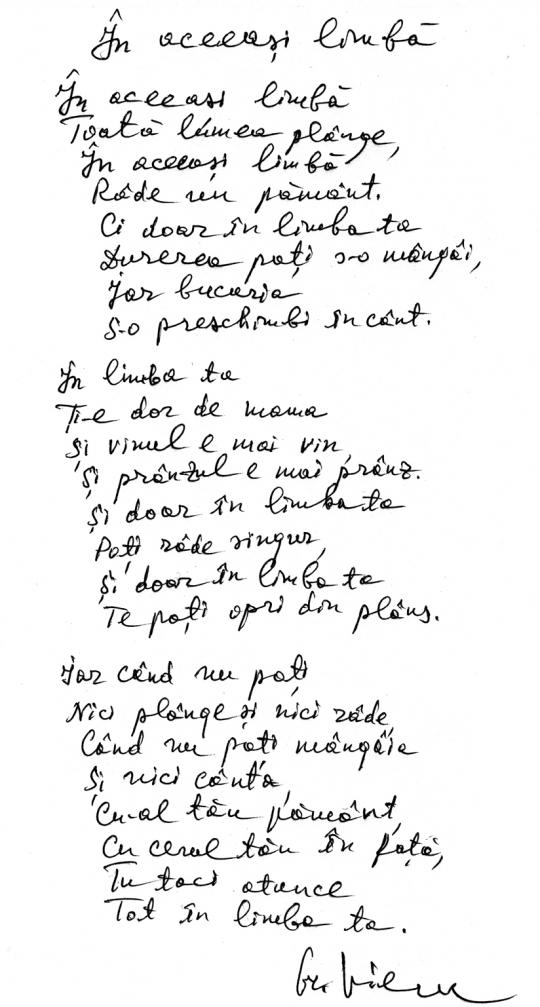 În aceeași limbă
În aceeasi limbă
Toată lumea plânge,
În aceeași limbă
Râde un pământ.
Ci doar în limba ta
Durerea poți s-o mângâi,
Iar bucuria
S-o preschimbi în cânt.
În limba ta
Ți-e dor de mama
Și vinul e mai vin,
Și prânzul e mai prânz.
Și doar în limba ta
Poți râde singur,
Și doar în limba ta
Te poți opri din plâns.
Iar când nu poți
Nici plânge și nici râde,
Când nu poți mângâia
Și nici cânta,
Cu-al tău pământ,
Cu cerul tău în față,
Tu taci atunce
Tot în limba ta.
Gr. Vieru